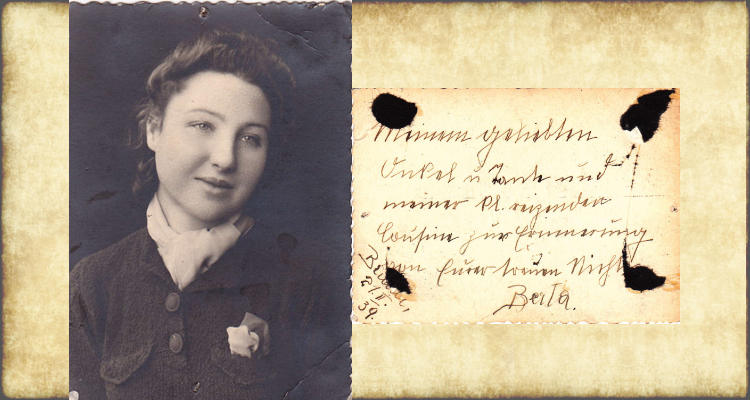 Meinem geliebten
Onkel u Tante und
meiner kl. reizenden
Cousine zur Erinnerung
von Eurer treuen Nichte
Berta.
21.II.
39.